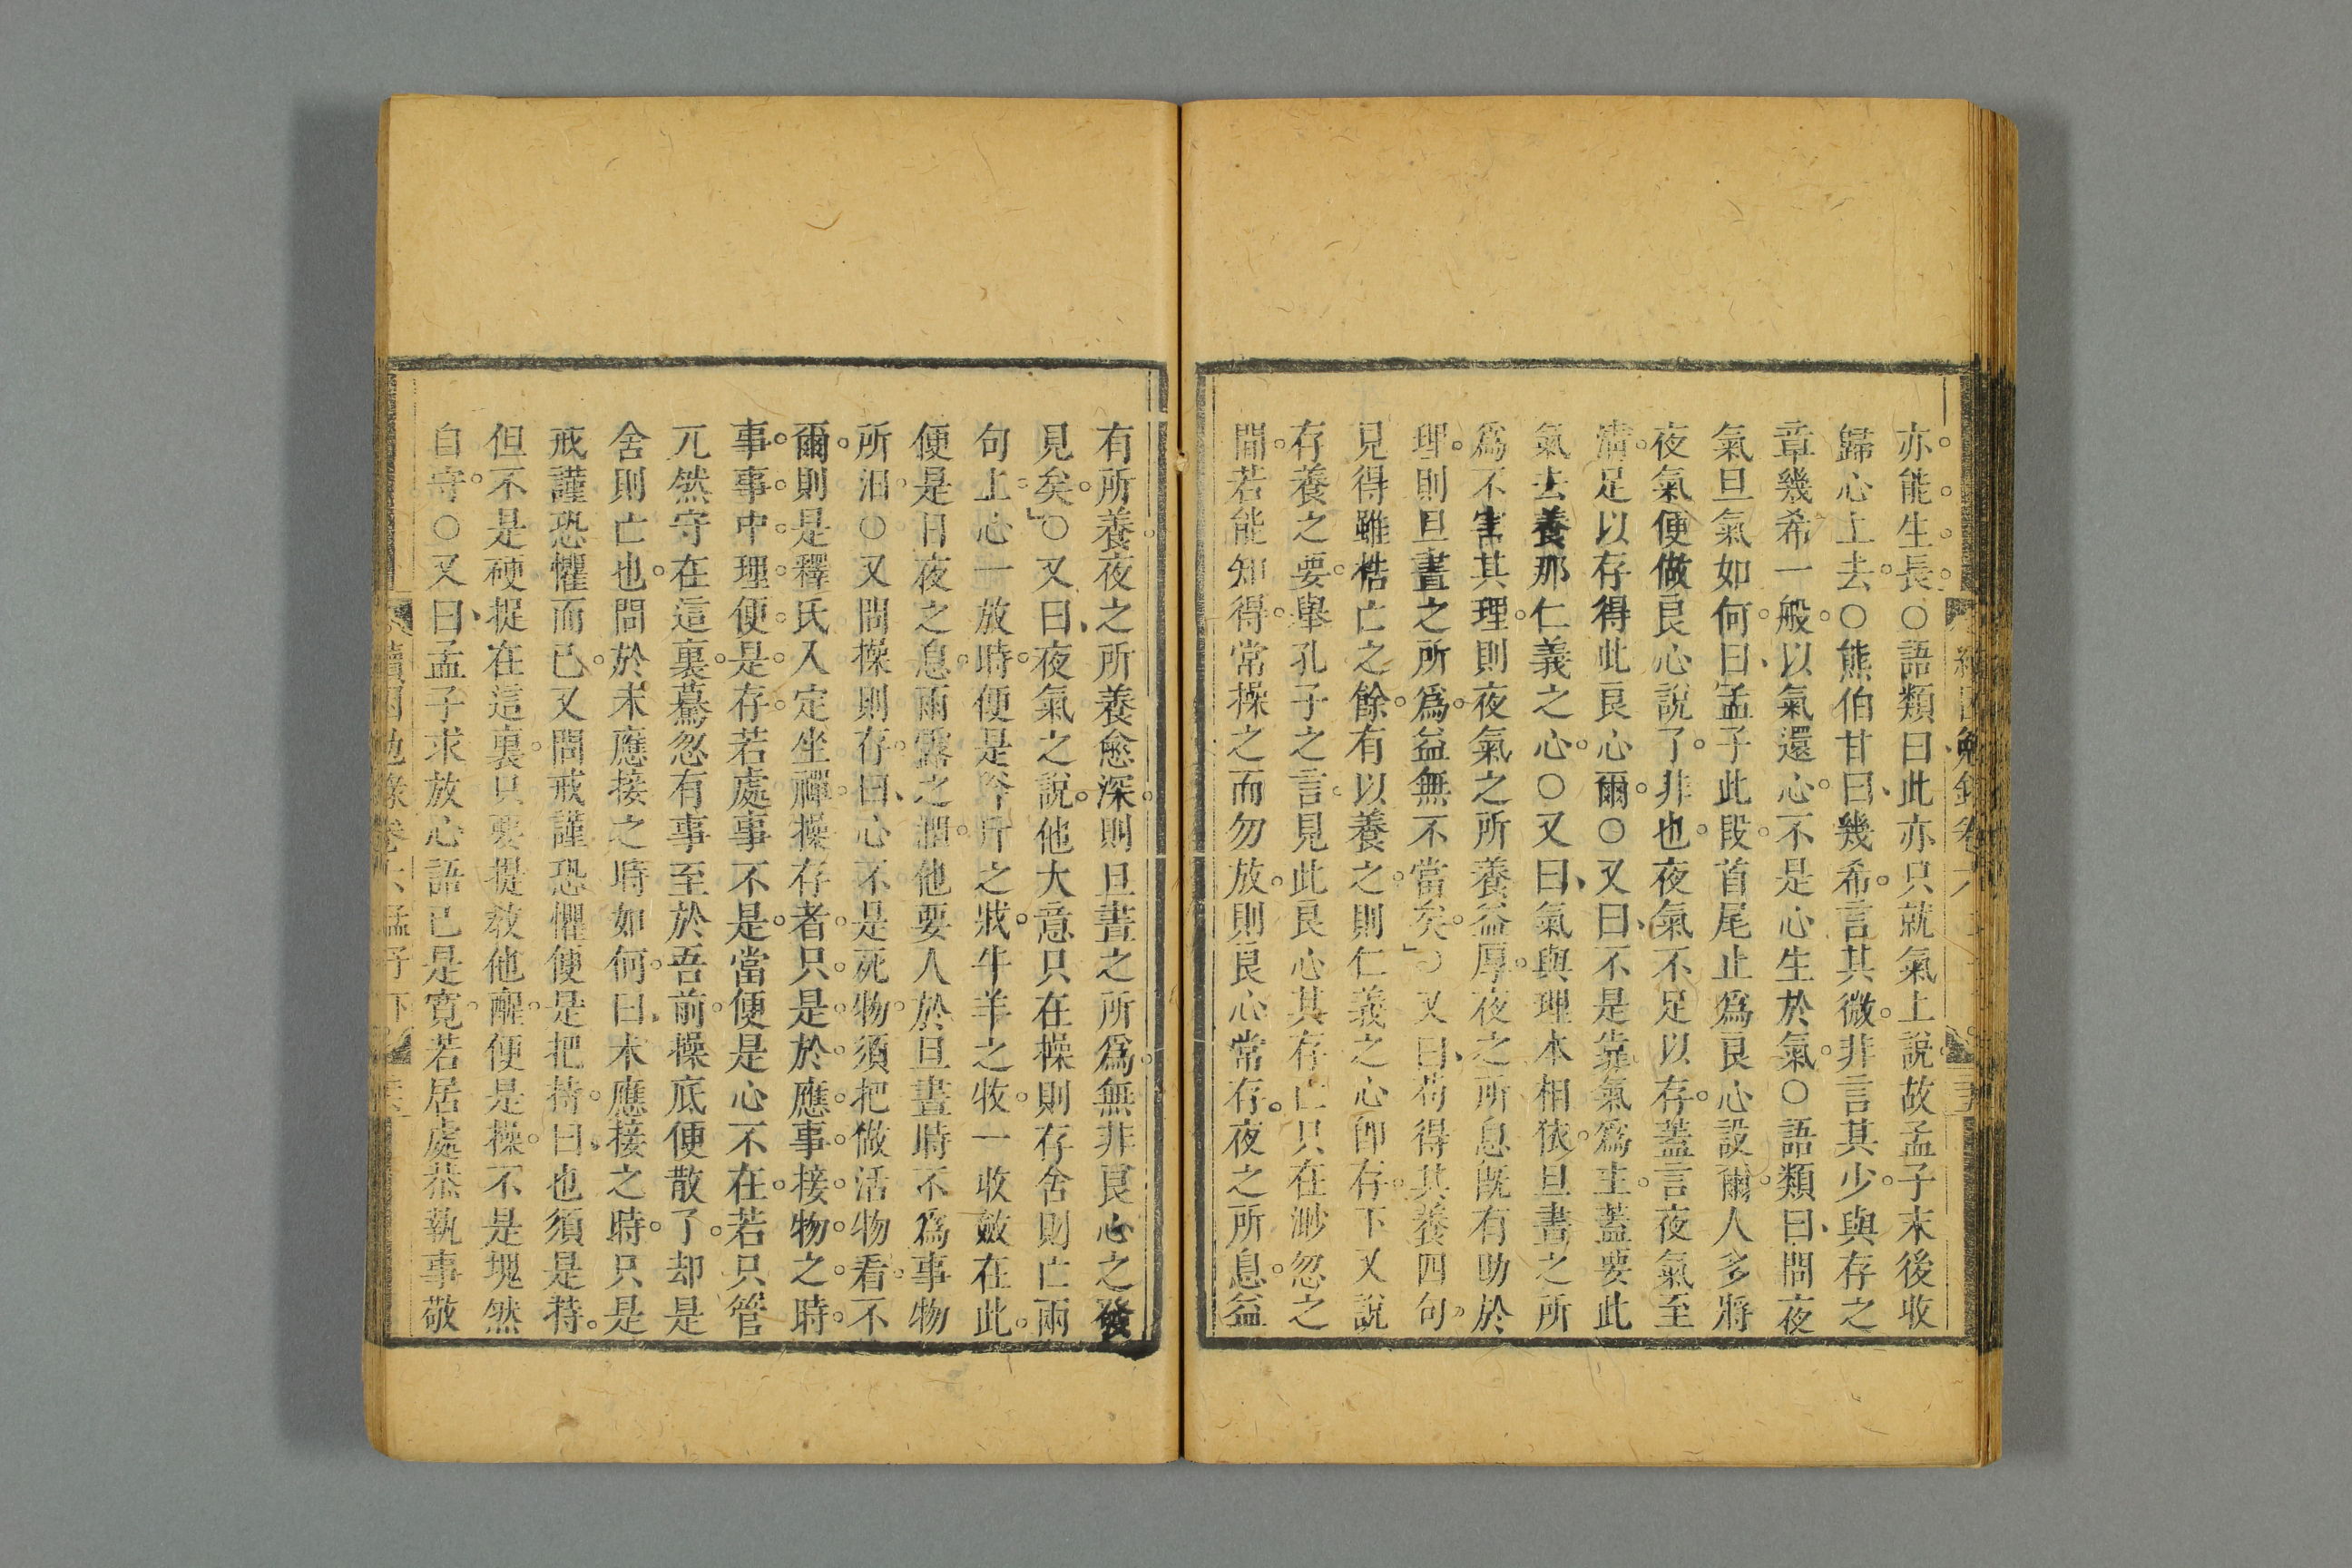 亦能生長○語類曰此亦只就氣上說故孟子末後收
歸心上去○熊伯甘曰幾希言其微非言其少與存之
章幾希一般以氣還心不是心生於氣○語類曰問夜
氣旦氣如何曰孟子此段首尾止爲良心設爾人多將
夜氣便做良心說了非也夜氣不足以存蓋言夜氣至
清足以存得此良心爾○又曰不是靠氣爲主蓋要此
氣去養那仁義之心○又曰氣與理本相依旦晝之所
爲不害其理則夜氣之所養益厚夜之所息旣有助於
理則旦晝之所爲益無不當矣○又曰苟得其養四句
見得雖梏亡之餘有以養之則仁義之心卽存下又說
存養之要舉孔子之言見此良心其存亡只在渺忽之
間若能知得常操之而勿放則良心常存夜之所息益
有所養夜之所養愈深則旦晝之所爲無非良心之發
見矣○又曰夜氣之說他大意只在操則存舍則亡兩
句上心一放時便是斧斤之戕牛羊之牧一收斂在此
便是日夜之息雨露之潤他要人於旦晝時不爲事物
所汨○又問操則存曰心不是死物須把做活物看不
爾則是釋氏入定坐禪操存者只是於應事接物之時
事事中理便是存若處事不是當便是心不在若只管
兀然守在這裏驀忽有事至於吾前操底便散了却是
舍則亡也問於未應接之時如何曰未應接之時只是
戒謹恐懼而已又問戒謹恐懼便是把持曰也須是持
但不是硬捉在這裏只要提敎他醒便是操不是塊然
自守○又曰孟子求放心語已是寬若居處恭執事敬
續困勉錄卷六孟子下